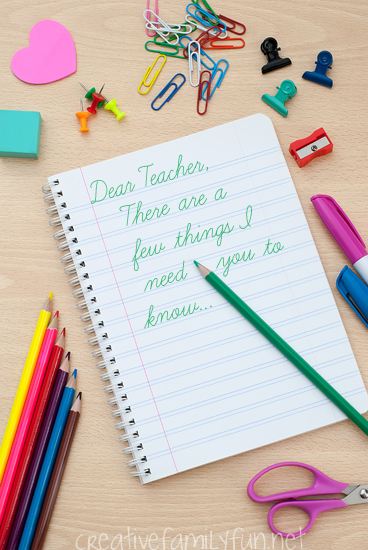 Dear Teacher,
There are a
few things I
need you to
know...
creativefamilyfun.net